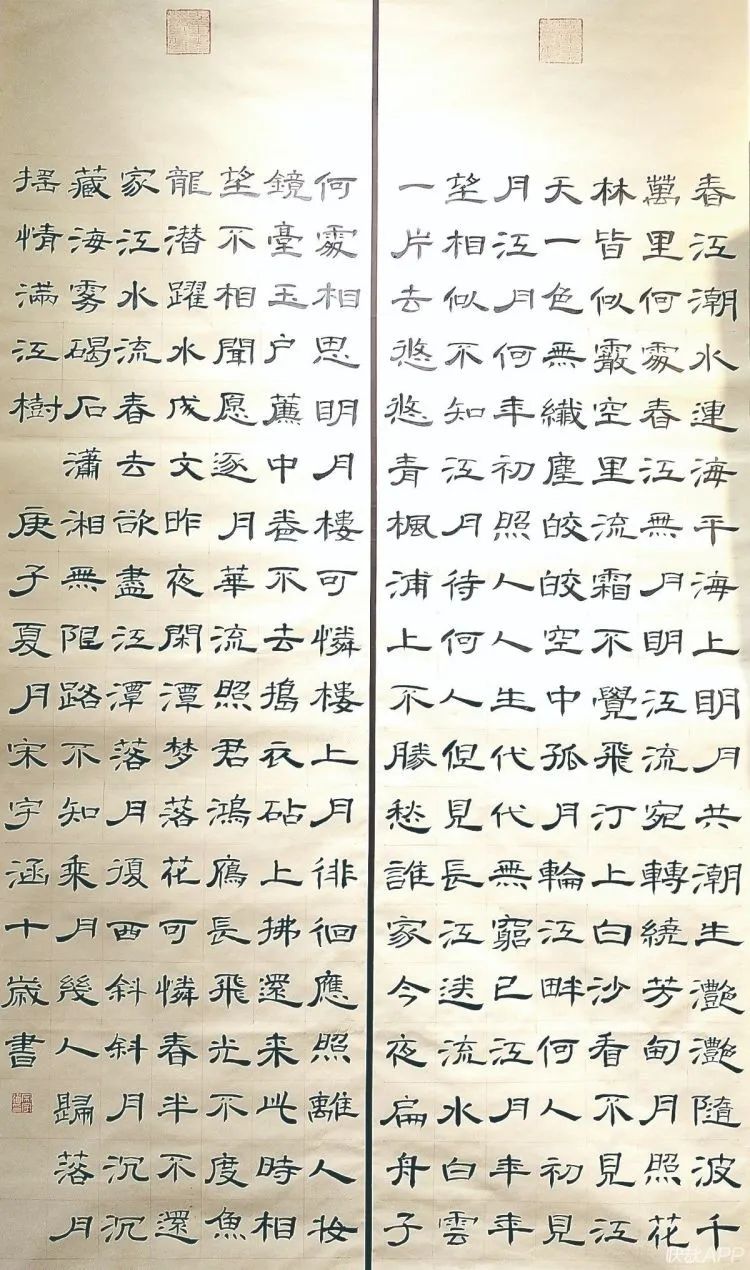 春江潮水連海平海上明月共潮生灩灩隨波千
萬里何處春江無月明江流宛轉繞芳甸月照花
林皆似霰空里流霜不覺飛汀上白沙看不見江
天一色無纖塵皎皎空中孤月輪江畔何人初見
月江月何年初照人人生代代無窮已江月年年
望相似不知江月待何人但見長江送流水白雲
一片去悠悠青楓浦上不勝愁誰家今夜扁舟子
何處相思明月樓可憐樓上月徘徊應照離人妆
鏡臺玉户簾中卷不去搗衣砧上拂還来此時相
望不相聞愿逐月華流照君鴻鴈長飛光不度魚
龍潜躍水成文昨夜閑潭梦落花可憐春半不還
家江水流春去欲盡江潭落月復西斜斜月沉沉
藏海雾碣石瀟湘無限路不知乘月幾人歸落月
摇情满江樹 庚子夏月宋宇涵十歲書
APP